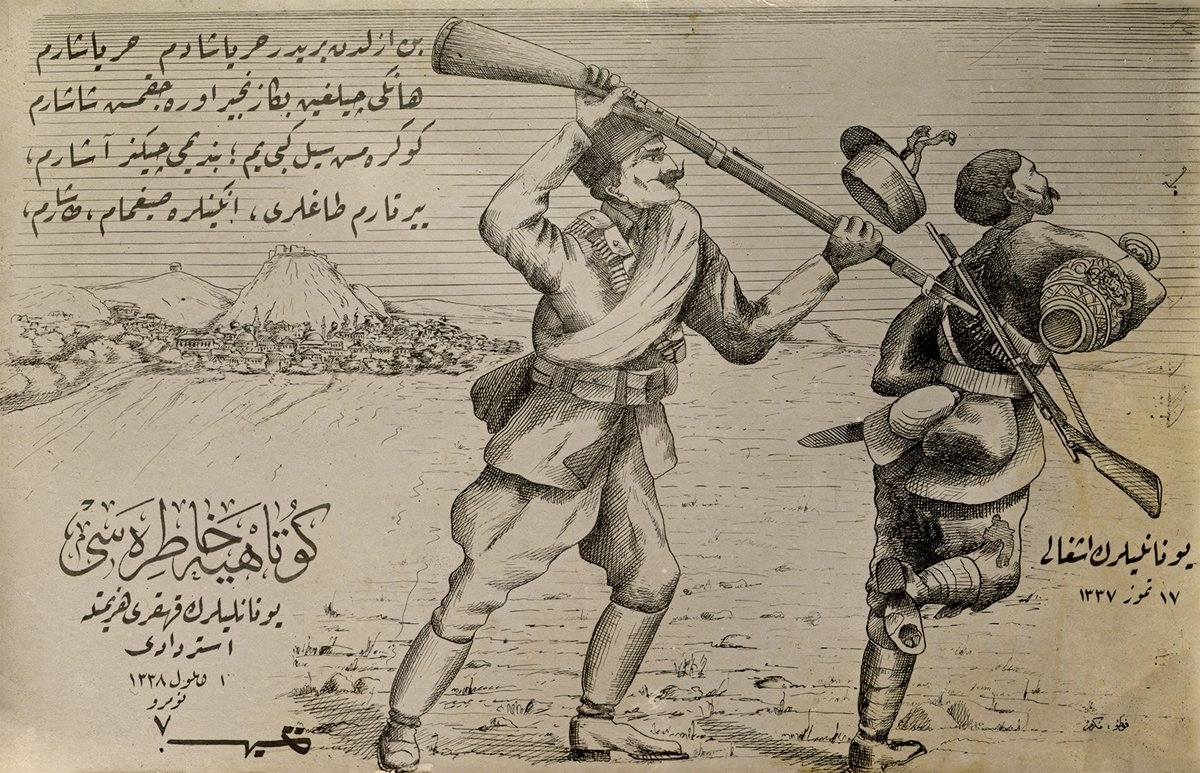 بن ازلدن بریدر حر یاشادم حر یاشارم
هانگی چیلغین بكا زنجیر اوره جقمش شاشارم
كوكره مش سیل كبی یم؛ بندیمی چیكنر آشارم،
ییرتارم طاغلری، انگینلره صیغمام، طاشارم،
كوتاهیه خاطره سی
یونانلیلرك قهقری هزیمتله
استردادی
١ ایلول ١٣٣٨
نومرو
٧
یونانلیلرك اشغالی
١٧ تموز ١٣٣٧